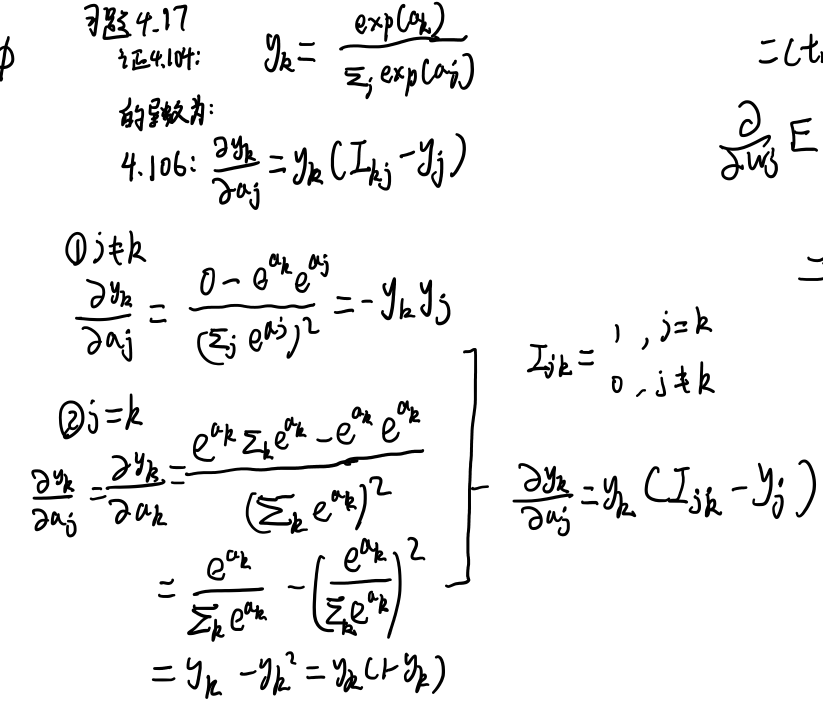 习题4.17
证4.104:
y_k = exp(a_k) / Σ_j exp(a_j)
的导数为:
4.106: ∂y_k/∂a_j = y_k(I_kj - y_j)
①j≠k
∂y_k/∂a_j = (0 - e^{a_k} e^{a_j}) / (Σ_j e^{a_j})^2 = -y_k y_j
②j=k
∂y_k/∂a_j = ∂y_k/∂a_k = (e^{a_k} Σ_k e^{a_k} - e^{a_k} e^{a_k}) / (Σ_k e^{a_k})^2
= e^{a_k} / Σ_k e^{a_k} - (e^{a_k} / Σ_k e^{a_k})^2
= y_k - y_k^2 = y_k(1-y_k)
I_jk = 1, j=k
0, j≠k
∂y_k/∂a_j = y_k(I_jk - y_j)
ϕ
=(t
∂/∂w_j E
=